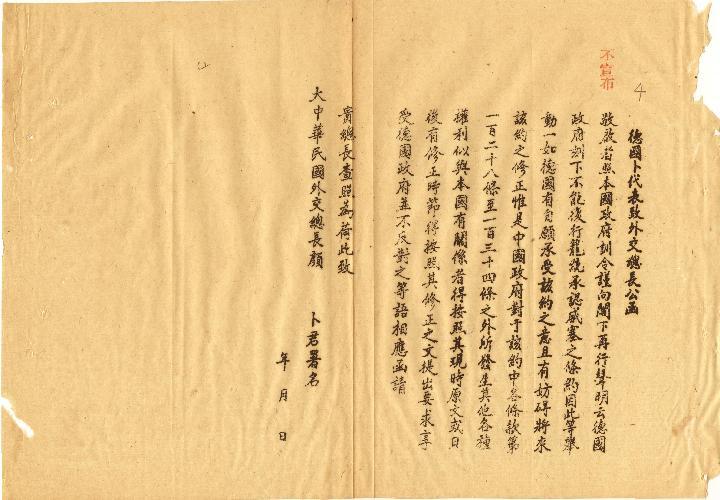 不宣布
4
德國卜代表致外交總長公函
敬啟者照本國政府訓令謹向閣下再行聲明云德國
政府刻下不能復行籠統承認威塞之條約因此等舉
動一如德國有自願承受該約之意且有妨碍將來
該約之修正惟是中國政府對于該約中各條款第
一百二十八條至一百三十四條之外所發生其他各種
權利似與本國有關係者得按照其現時原文或日
後有修正時節得按照其修正之文提出要求享
受德國政府並不反對之等語相應函請
貴總長查照為荷此致
大中華民國外交總長顏
卜君署名
年 月 日